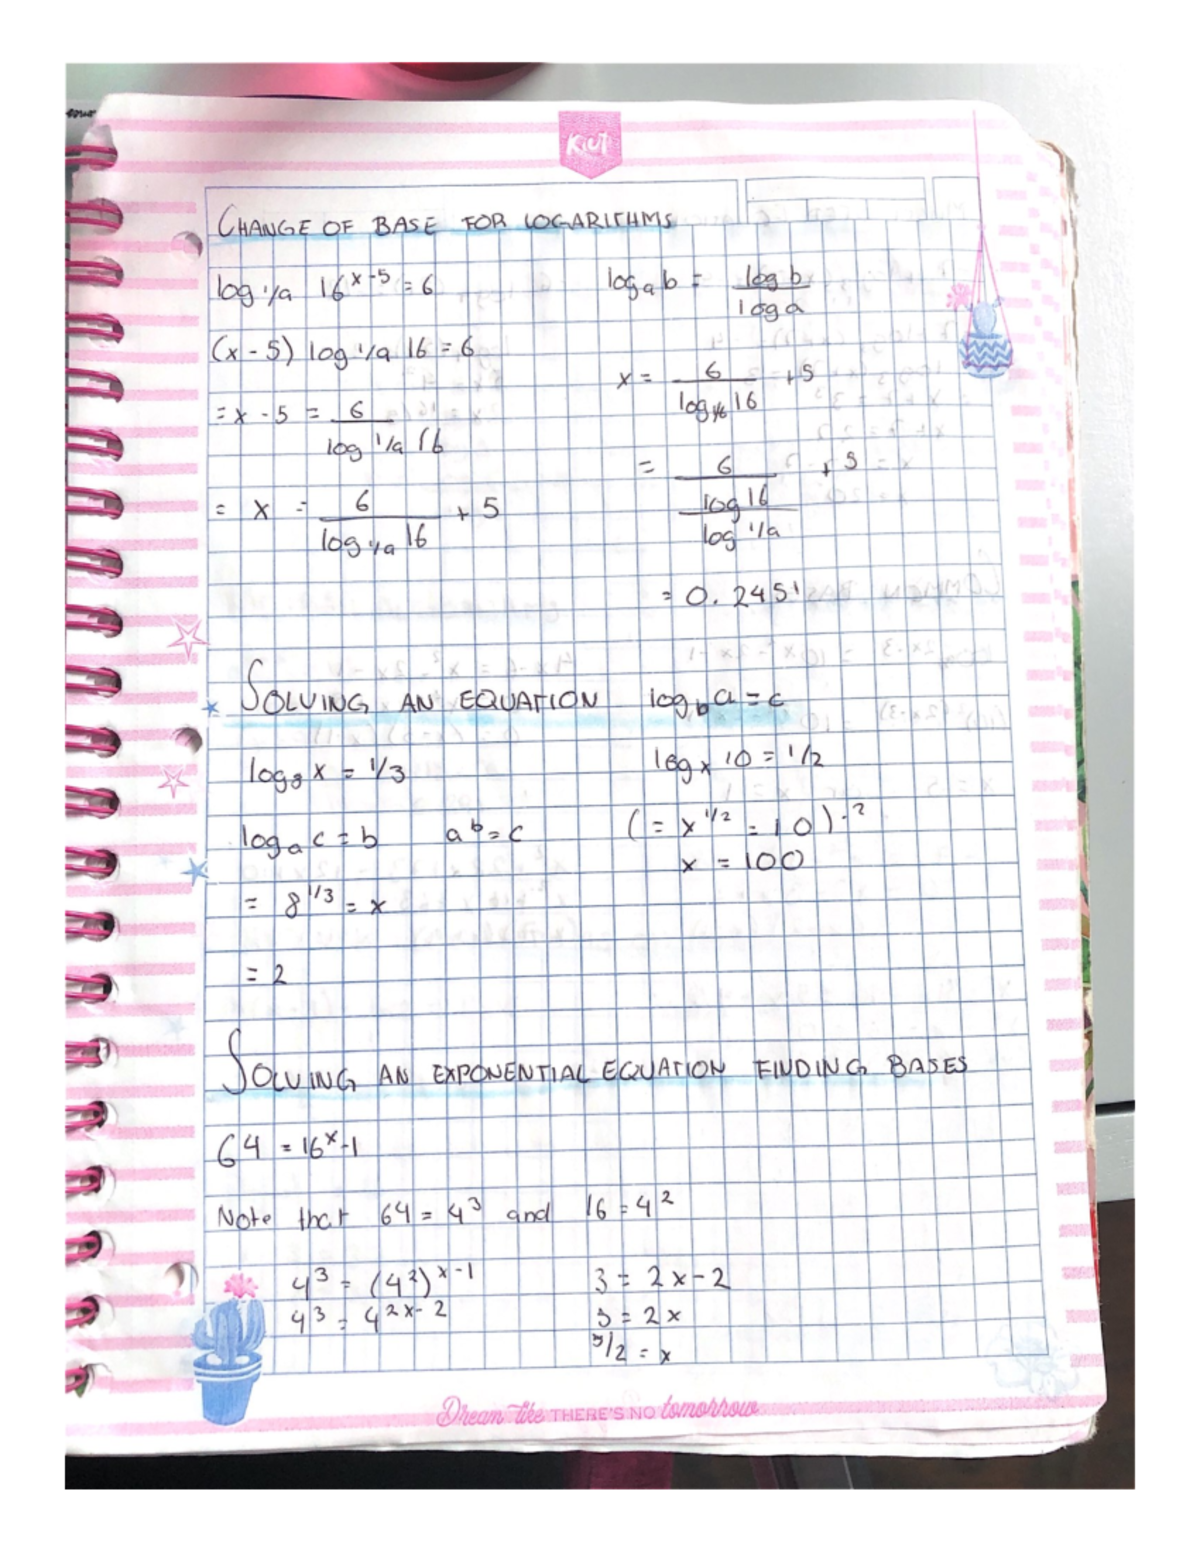 KIUT
CHANGE OF BASE FOR LOGARITHMS
log 1/a 16^x-5 = 6
(x - 5) log 1/a 16 = 6
= x - 5 = 6 / log 1/a 16
= x = 6 / log 1/a 16 + 5
log_a b = log b / log a
x = 6 / log 16 + 5
= 6 / (log 16 / log 1/a) + 5
= 0.2451
SOLVING AN EQUATION log_b a = c
log_8 x = 1/3
log_a c = b a^b = c
= 8^1/3 = x
= 2
log_x 10 = 1/2
( = x^1/2 = 10 ) ·2
x = 100
SOLVING AN EXPONENTIAL EQUATION FINDING BASES
64 = 16^x-1
Note that 64 = 4^3 and 16 = 4^2
4^3 = (4^2)^x-1
4^3 = 4^2x-2
3 = 2x-2
5 = 2x
5/2 = x
Dream like THERE'S NO tomorrow